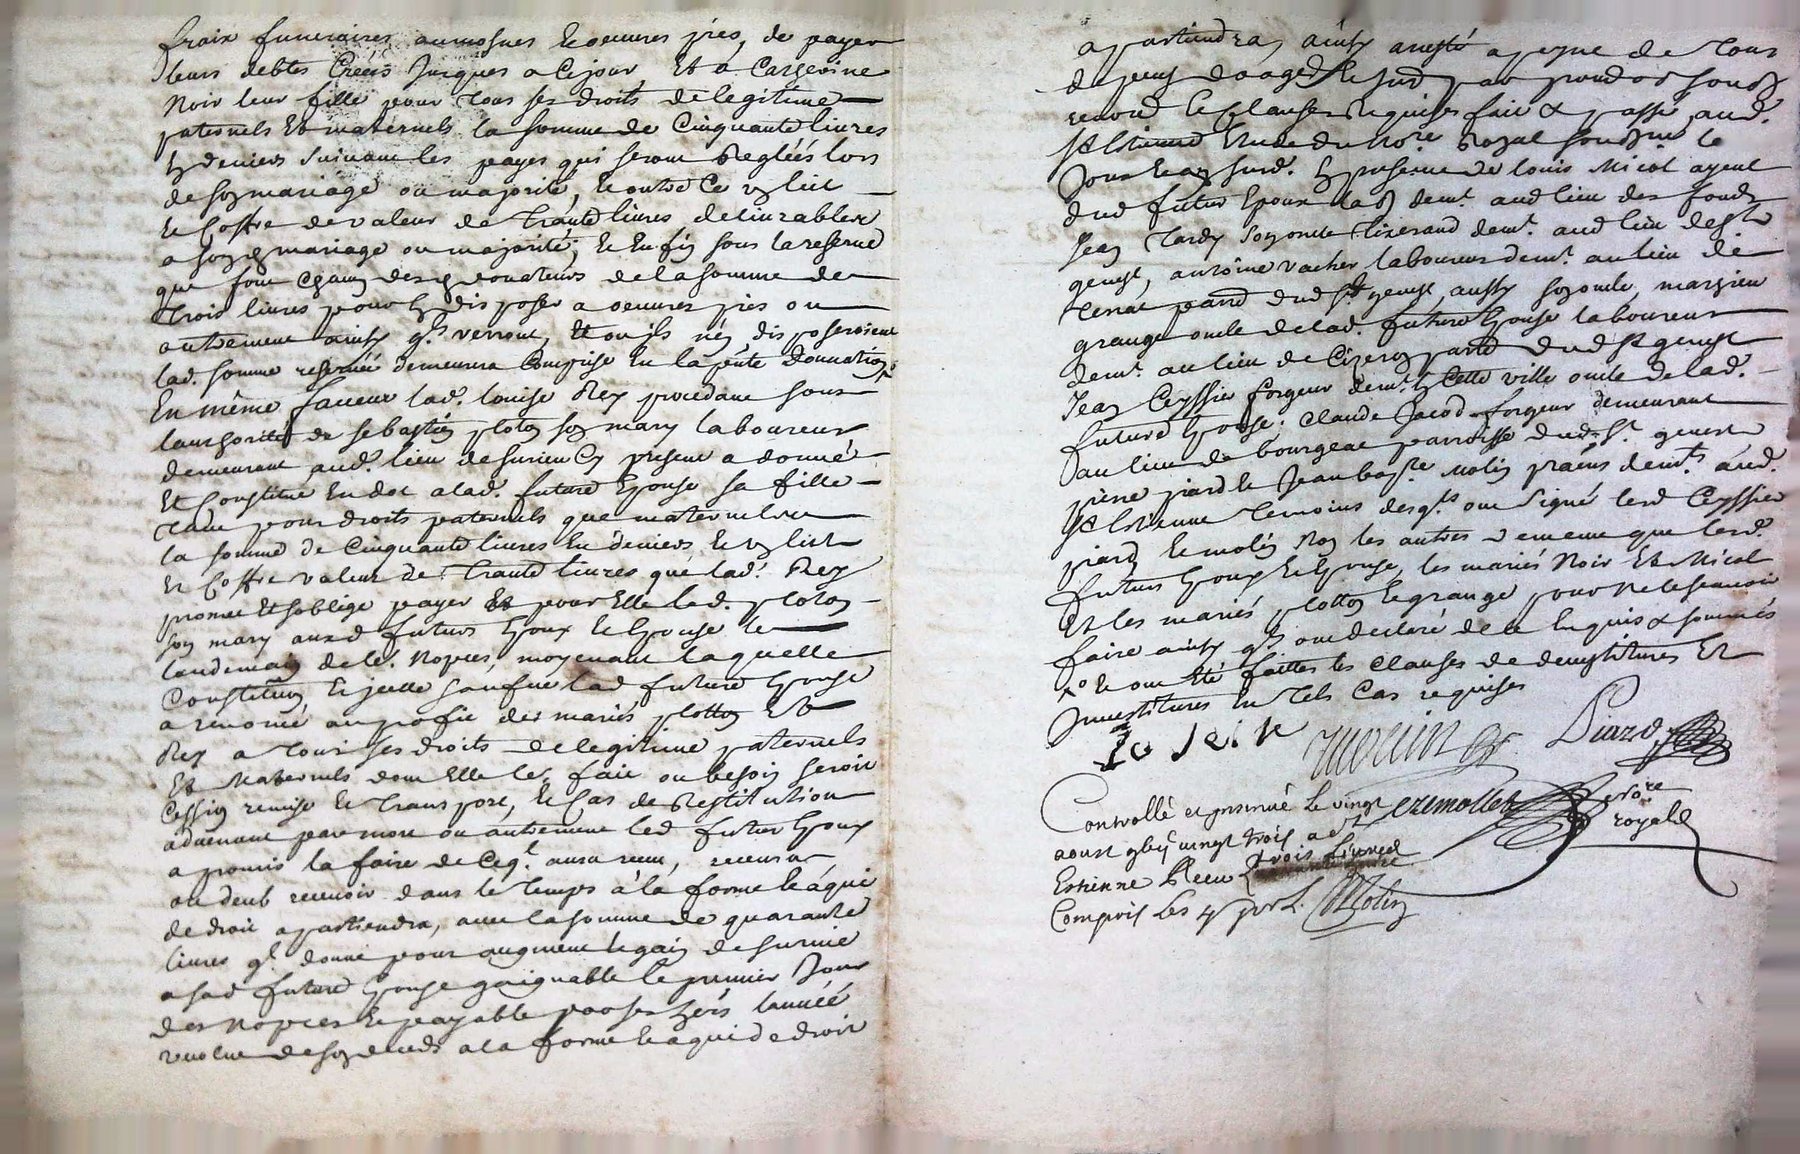 fraix funeraires aumosnes & oeuvres pies, de payer
leurs debtes Creées Jusques a Ce jour, Et a Catherine
Noir leur fille pour tous ses droits de legitime
paternels Et maternels la somme de Cinquante livres
En deniers suivant les payes qui seront Reglées lors
de son mariage ou majorité, & outre Ce un lict
& Coffre de valeur de trante livres delivrables
a son mariage ou majorité; & Enfin sous la reserve
que font Chacun desd donateurs de la somme de
trois livres pour En disposer a oeuvres pies ou
autrement ainsy q.ls verront, Et ou ils n'en disposeroient
lad. somme reservée demeurera Comprise En la pnte donnation.
En même faveur lad. louise Rey procedant sous
l'authorité de sebastien ploton son mary laboureur
demeurant aud. lieu de surieu Cy present a donné
Et Constitué En dot a lad. future Epouse sa fille
tant pour droits paternels que maternels
la somme de Cinquante livres En deniers & un lict
Et Coffre valeur de trante livres que lad. Rey
promet Et s'oblige payer & pour Elle led. ploton
son mary ausd futurs Epoux & Epouse le
landemain de le. Nopces, moyenant laquelle
Constitu͠on & jcelle sauf lad future Epouse
a renoncé au profit des mariés plotton Et
Rey a tous ses droits de legitime paternels
Et Maternels dont Elle le. fait ou besoin seroit
Cession remise & transport, & Cas de Restitution
advenant par mort ou autrement led futur Epoux
a promis la faire de Ceq.l aura receu, recevra
ou deub recevoir dans le temps a la forme & a qui
de droit apartiendra, avec la somme de quarante
livres q.l donne pour augment & gain de survie
a sad future Epouse gaignable le premier Jour
des Nopces & payable pour ses hers l'année
revolue de son deceds a la forme & a qui de droit
apartiendra, ainsy aresté a peyne de tous
despens domages & sur
renond. & Clauses Requises fait & passé aud.
St Estienne Etude du No.re Royal soubz.né le
Jour & an surd. En presence de louis Nicol ayeul
dud futur Epoux dem.t aud lieu des fonds
Jean tardy son oncle tixerand dem.t aud lieu de s.t
genest, antoine vacher laboureur dem.t au lieu de
parr dud St genest aussy son oncle, mathieu
grange oncle de lad. future Epouse laboureur
dem.t au lieu de Cizeron parr dud St genest
Jean Ceyssier forgeur dem.t En Cette ville oncle de lad.
future Epouse. Claude Jacod forgeur demeurant
au lieu de bourgeat parroisse dud. St. genest
pierre piard & Jean bap.te Molin praticiens dem.ts aud.
St Estienne temoins desq.ls ont Signé lesd Ceyssier
piard & molin Non les autres de même que lesd.
futurs Epoux & Epouse, les mariés Noir Et Nicol
Et les mariés plotton & grange pour ne le scavoir
faire ainsy q.ls ont declaré de ce Enquis & sommés
& ont Eté faittes les clauses de devestitures Et
Jnvestitures En tels Cas requises
Molin
Piard
Controllé et insinué le vingt
aoust gbij vingt trois a St
Estienne Receu trois livres
Compris Les 4 s por L. Molin
No.re
royal